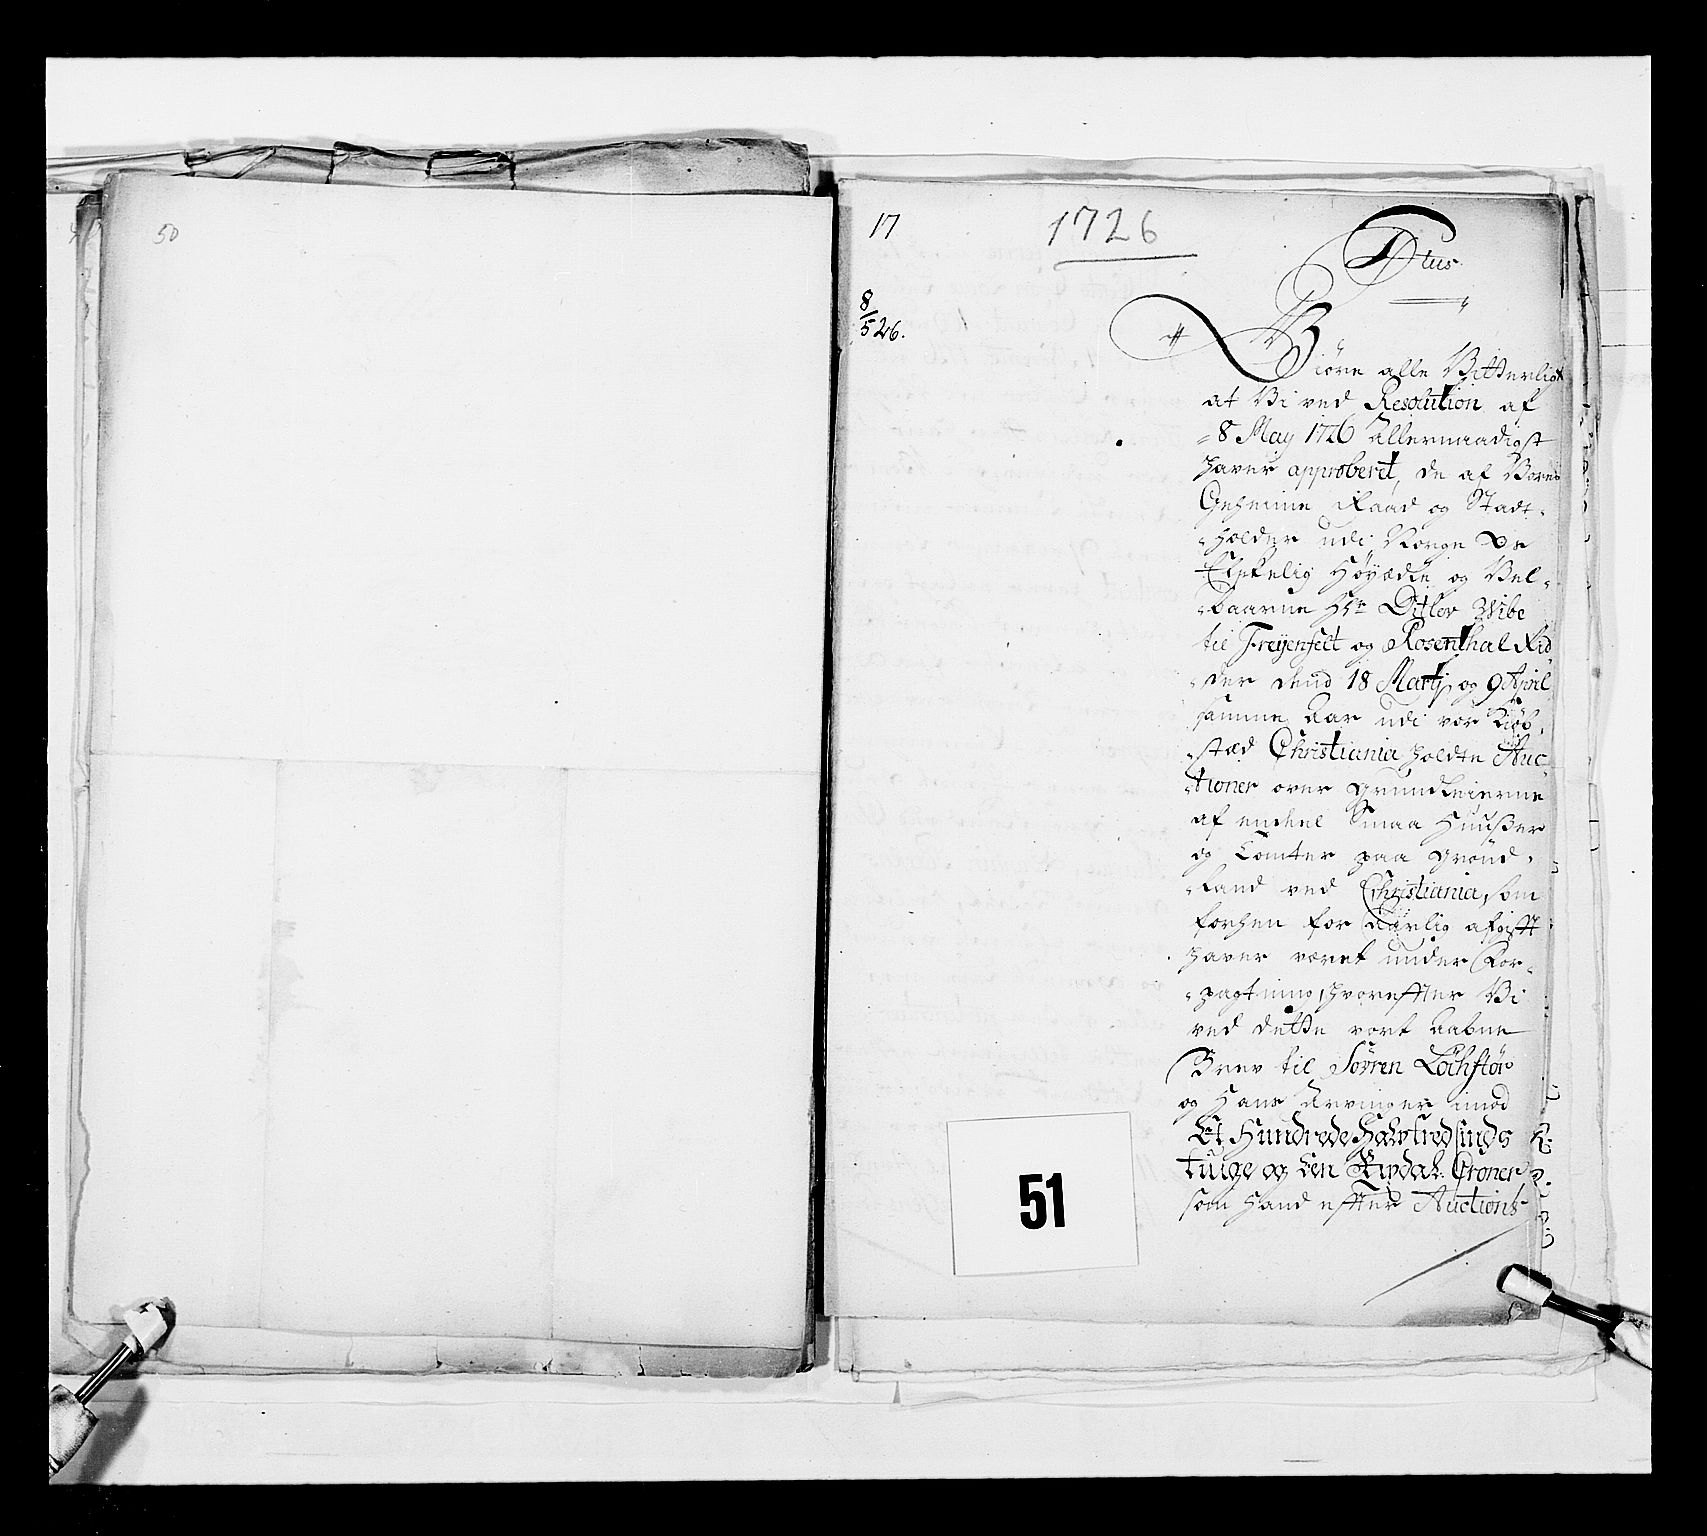 50
17
1726
Titus.
8/5 26.
Giöre alle Vitterligt
at Vi ved Resolution af
8 May 1726 allernaadigst
haver approberet, de af Vores
Geheime Raad og Stadt-
holder udi Norge Os
Elskelig Høyædle og Vel-
baarne Hr. Ditlev Wibe
til Freyenfelt og Rosenthal Rid
der dend 18 Martj og 9 April
samme Aar udi vor Kiøb-
stæd Christiania holdte Auc-
tioner over Grundleierne
af endeel Smaa Huußer
og Tomter paa Grønd-
land ved Christiania, som
forhen for Aarlig afgifft
haver været under For-
pagtning, hvorefter Vi
ved dette vort Aabne
Brev til Sövren Löchstör
og Hans Arvinger imod
Et Hundrede Halvtredsinds
tuige og Een Rixdal. Croner
som hand effter Auctions-
51